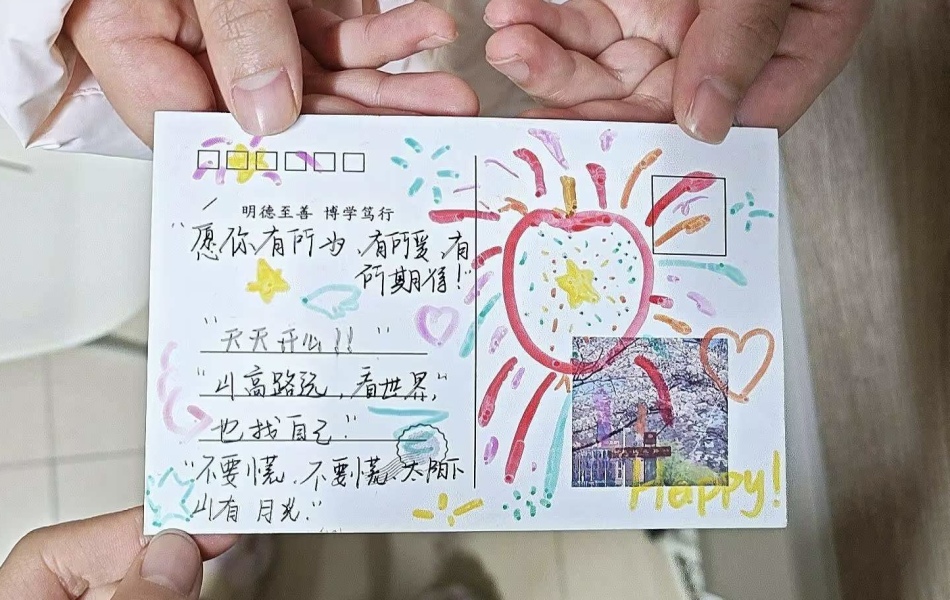 明德至善 博学笃行
"愿你有所为,有所爱,有
所期待!"
"天天开心!!"
"山高路远,看世界,"
也找自己."
"不要慌,不要慌,太阳下
山有月光."
Happy!